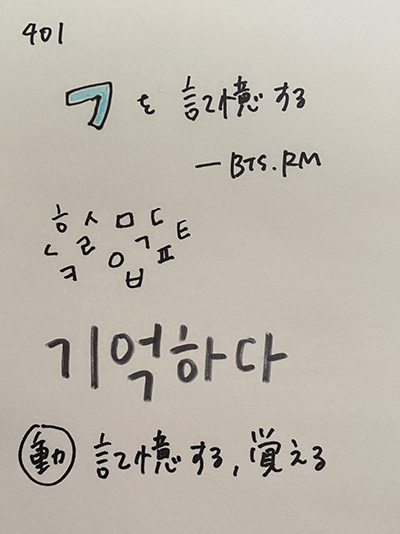 401
ㄱを記憶する
—BTS.RM
ㅎ ㅅ ㅁ ㄷ
ㄴ ㄹ ㄱ ㅌ
ㅋ ㅇ ㅂ ㅍ
기억하다
動 記憶する,覚える